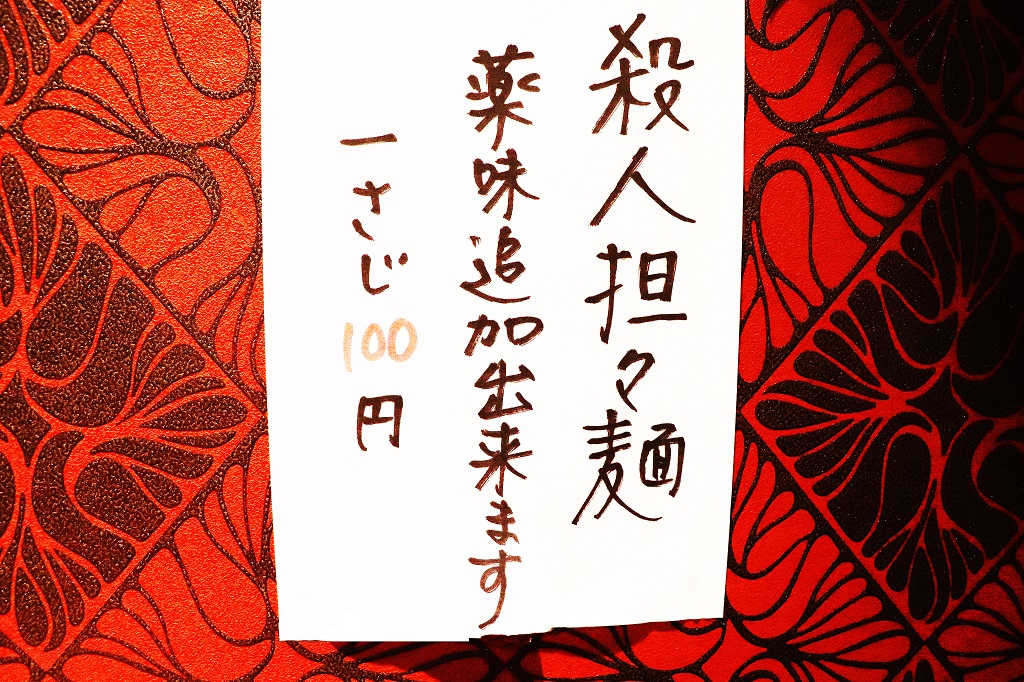 殺人担々麺
薬味追加出来ます
一さじ100円